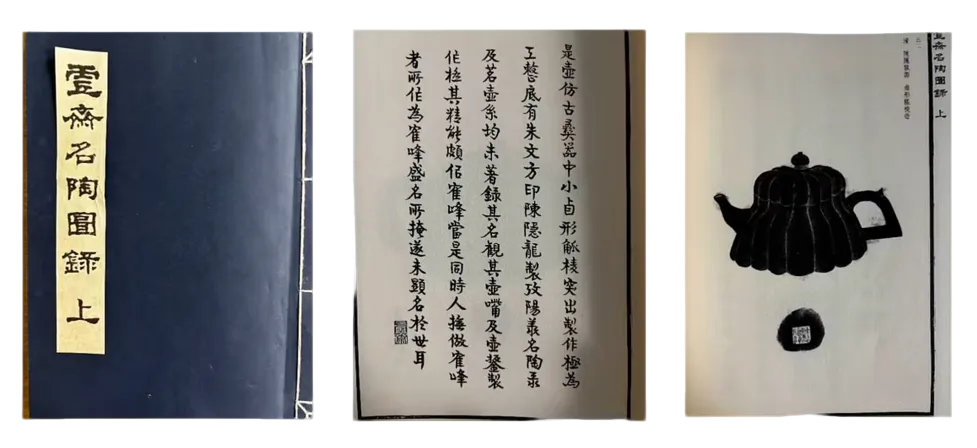 齋名陶圖錄 上
是壺仿古彝器中小卣形觚棱突出製作極為
工整底有朱文方印陳隱龍製攷陽羨名陶录
及茗壺系均未著錄其名觀其壺嘴及壺鋬製
作極其精能頗佀寉峰當是同時人摹倣寉峰
者所作為寉峰盛名所掩遂未顯名於世耳
齋名陶圖錄 上
清 陳隱龍製 卣形觚棱壺